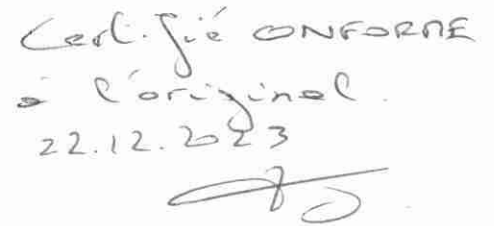 Certifié CONFORME
à l'original.
22.12.2023